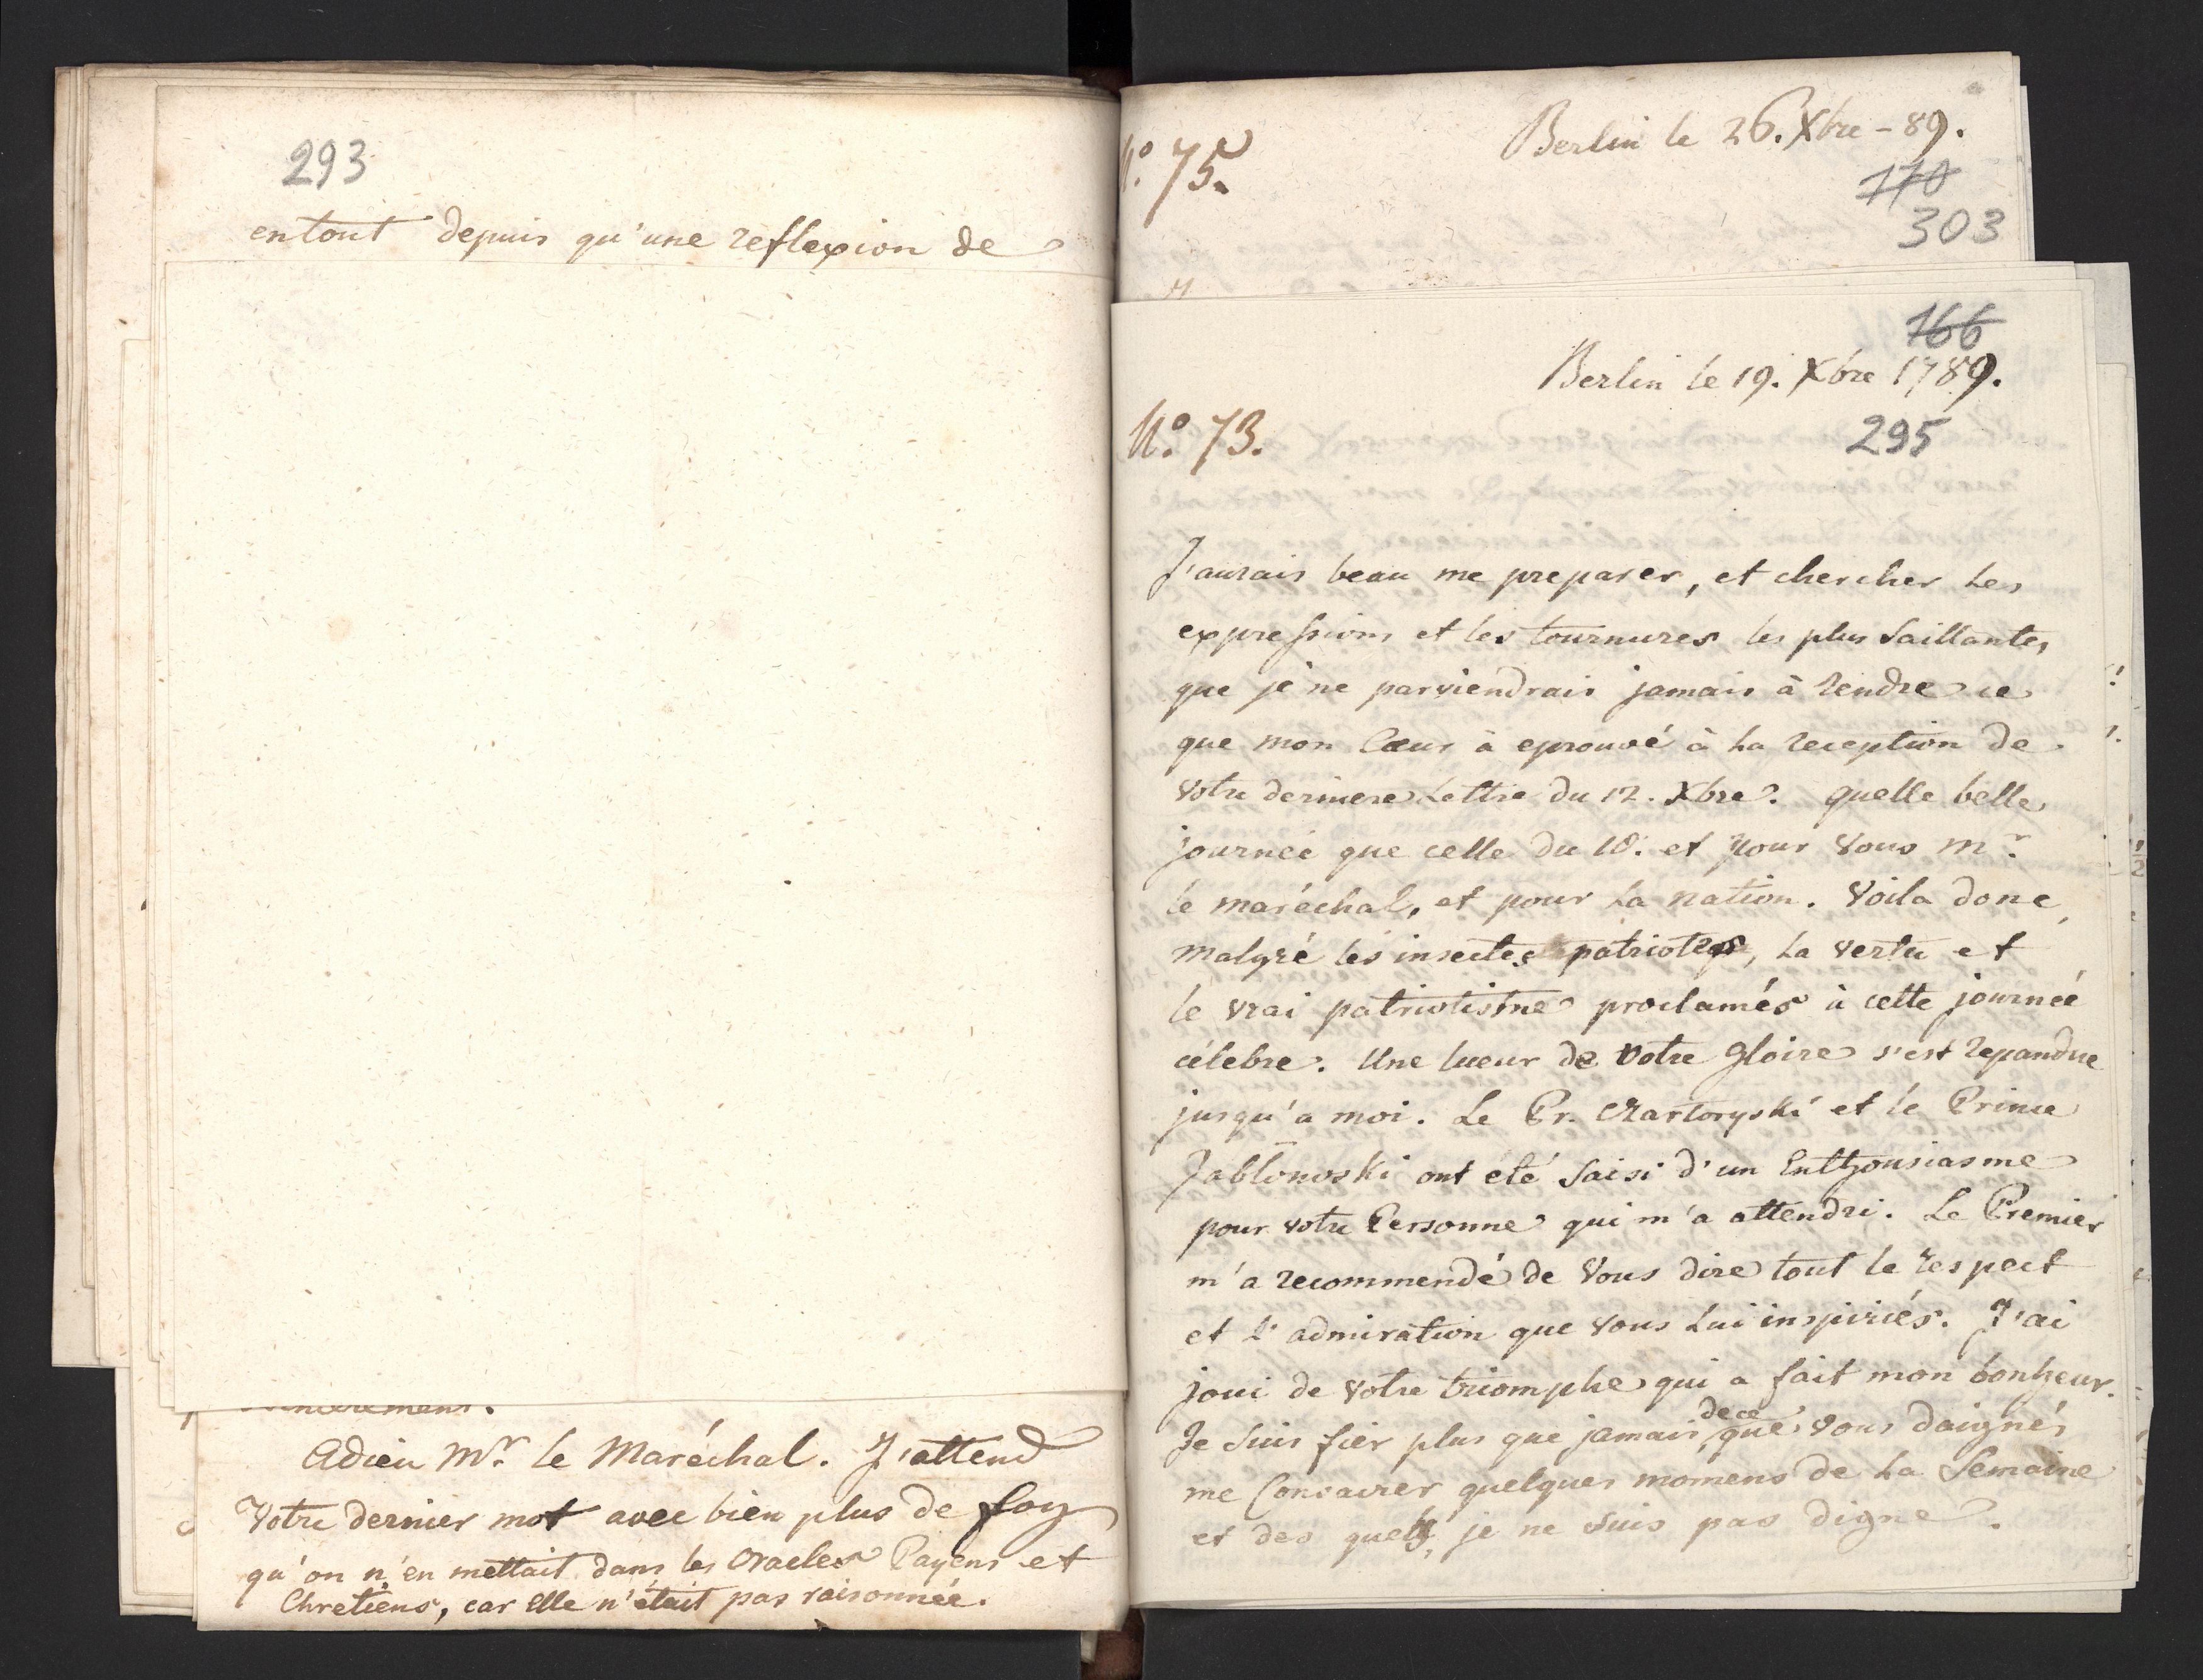 293
entout depuis qu'une reflexion de
Adieu Mr. le Maréchal. J'attend
Votre dernier mot avec bien plus de foy
qu'on n'en mettait dans les Oracles Payens et
Chretiens, car elle n'était pas raisonnée.
No. 75.
Berlin le 26. Xbre - 89.
170
303
166
Berlin le 19. Xbre 1789.
No. 73.
295
J'aurais beau me preparer, et chercher les
expressions et les tournures les plus saillantes
que je ne parviendrais jamais à rendre ce
que mon Cœur à eprouvé à la reception de
votre derniere Lettre du 12. Xbre. quelle belle
journée que celle du 10. et pour vous mr.
le maréchal, et pour la nation. Voila donc
malgré les insectes patriotes, la vertu et
le vrai patriotisme proclamés à cette journée
célebre. Une lueur de votre gloire s'est repandue
jusqu'a moi. Le Pr. Czartoryski et le Prince
Jablonoski ont été saisi d'un Enthousiasme
pour votre Personne qui m'a attendri. Le Premier
m'a recommendé de Vous dire tout le respect
et l'admiration que vous lui inspiriés. J'ai
joui de votre triomphe qui a fait mon bonheur.
Je suis fier plus que jamais de ce que vous daignés
me Consacrer quelques momens de la Semaine
et des quels je ne suis pas digne.